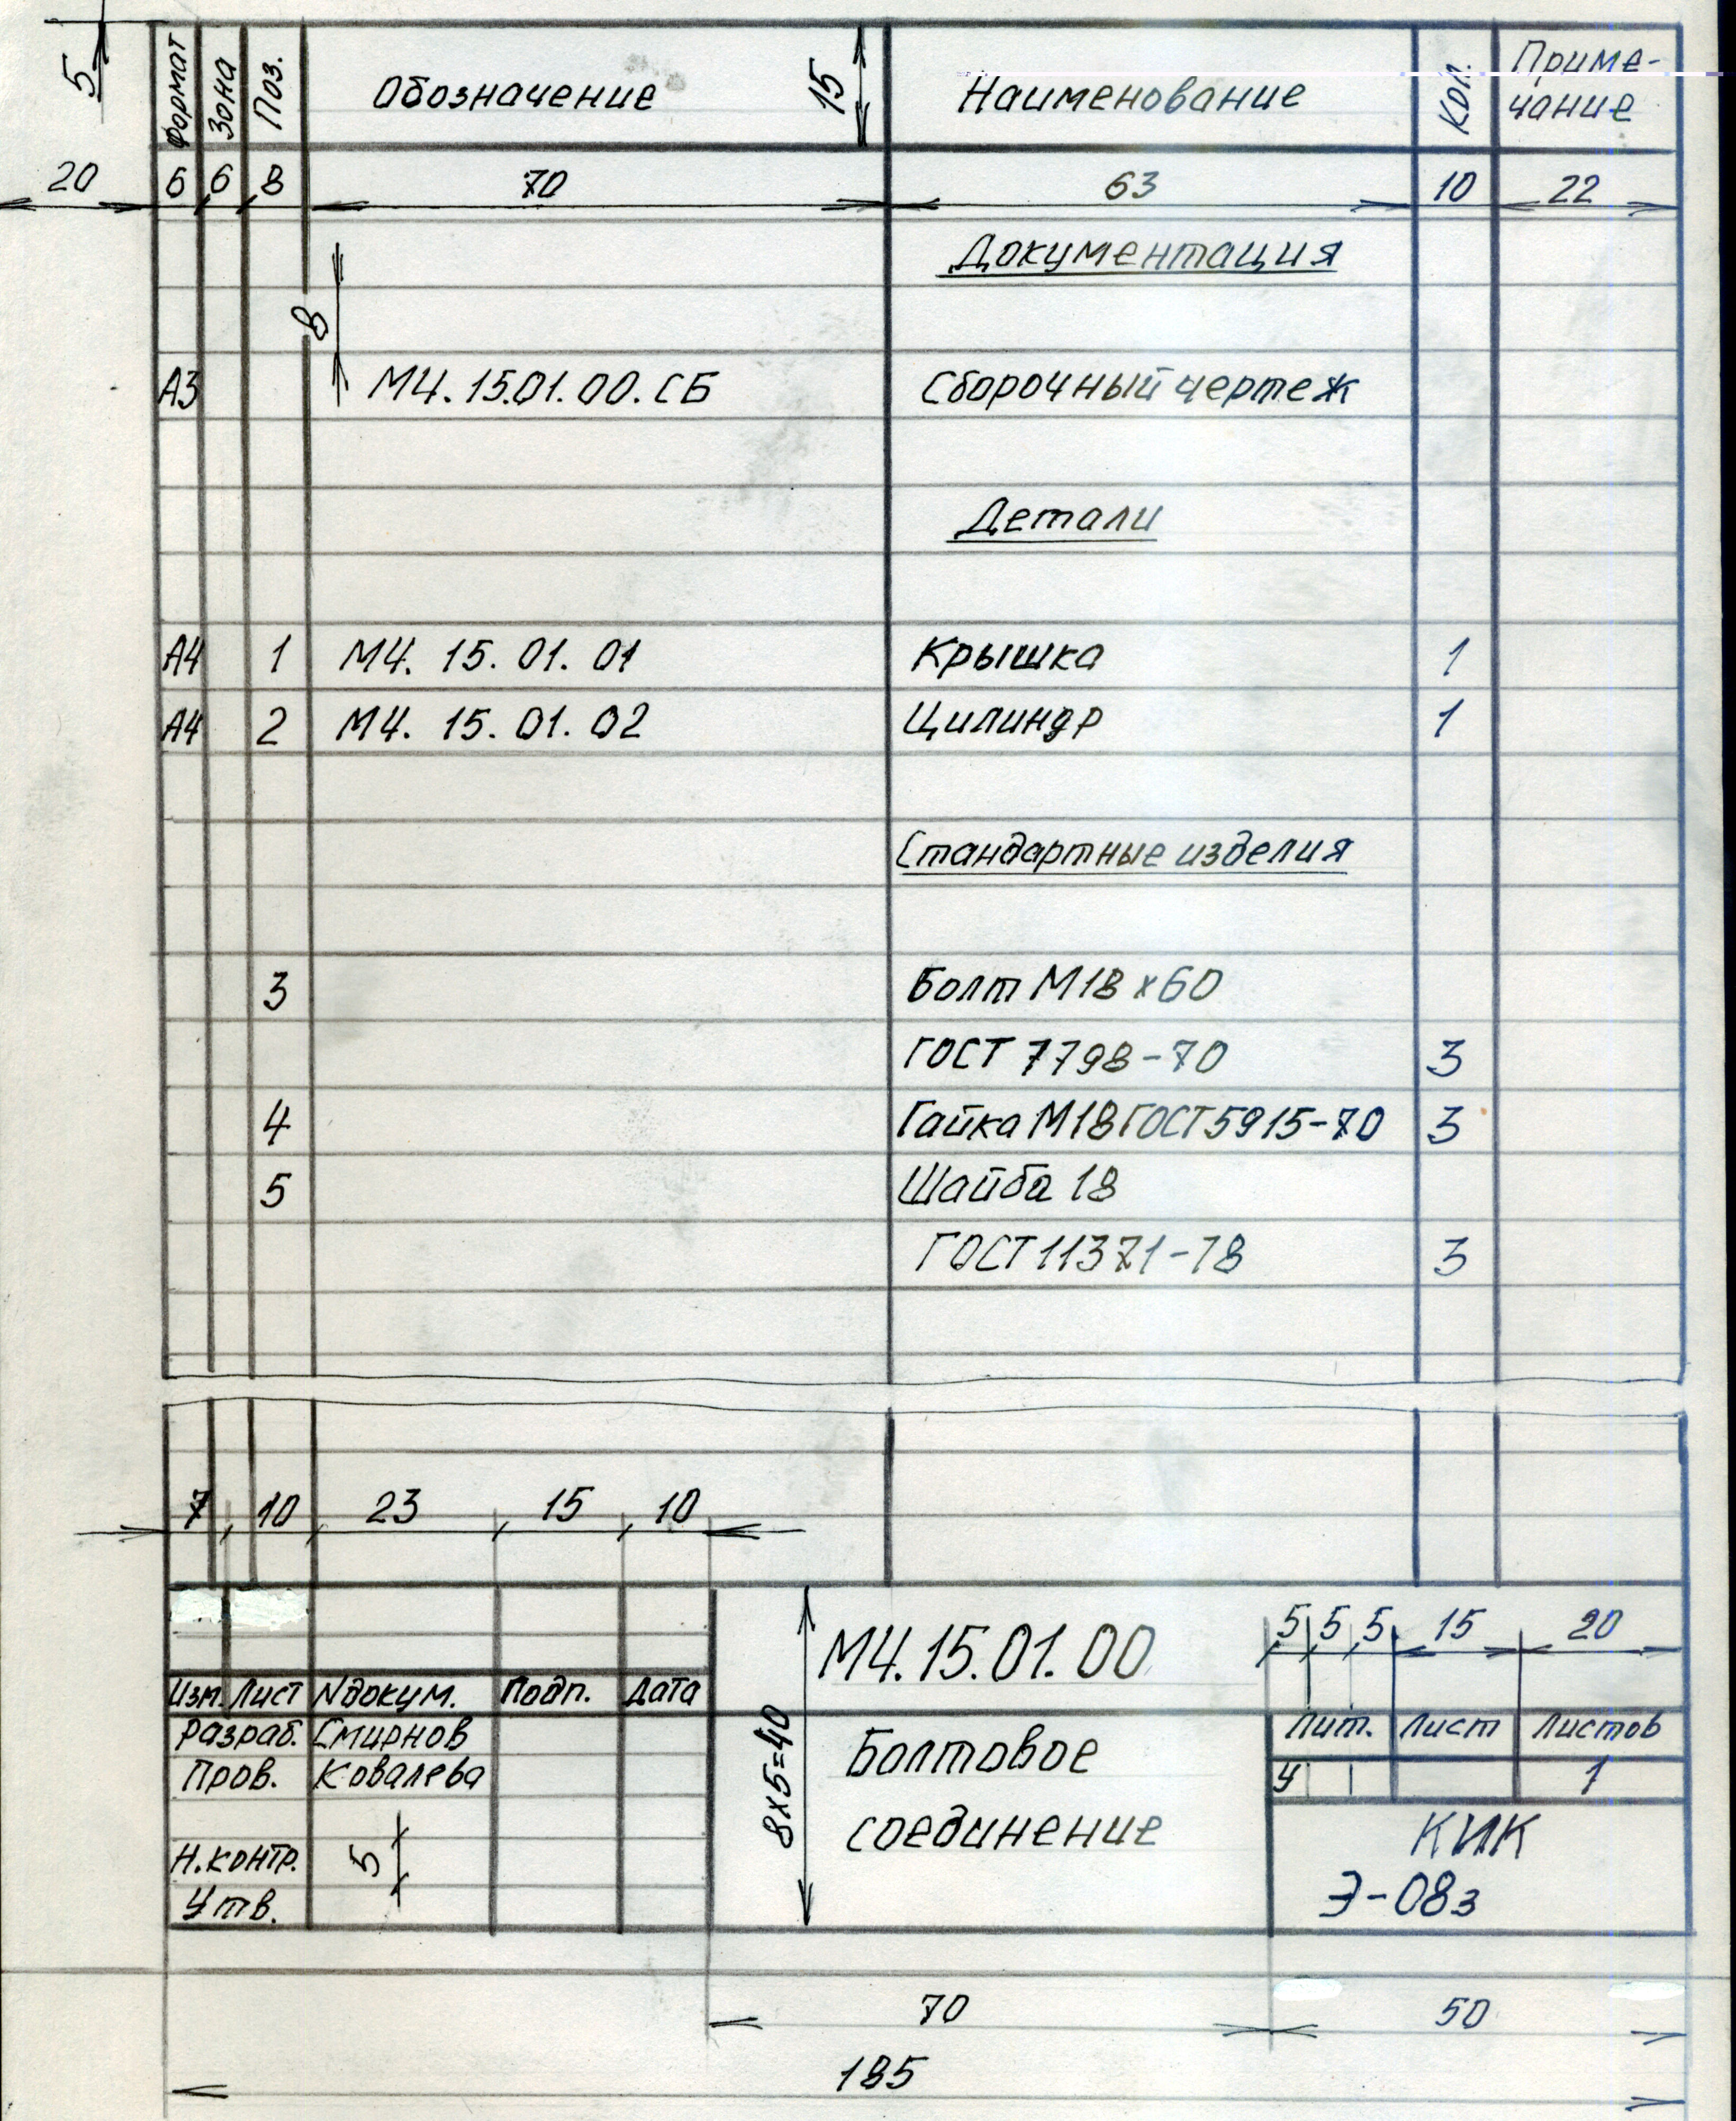 5
Формат Зона Поз. Обозначение 15 Наименование Кол. Приме-
чание
20 6 6 8 70 63 10 22
Документация
8
А3 М4.15.01.00.СБ Сборочный чертеж
Детали
А4 1 М4. 15. 01. 01 Крышка 1
А4 2 М4. 15. 01. 02 Цилиндр 1
Стандартные изделия
3 Болт М18х60
ГОСТ 7798-70 3
4 Гайка М18 ГОСТ 5915-70 3
5 Шайба 18
ГОСТ 11371-78 3
7 10 23 15 10
М4.15.01.00 5 5 5 15 20
Изм. Лист Nдокум. Подп. Дата
Разраб. Смирнов 8х5=40 Болтовое Лит. Лист Листов
Пров. Ковалева соединение У 1
Н.контр. 5 КИК
Утв. Э-08з
70 50
185